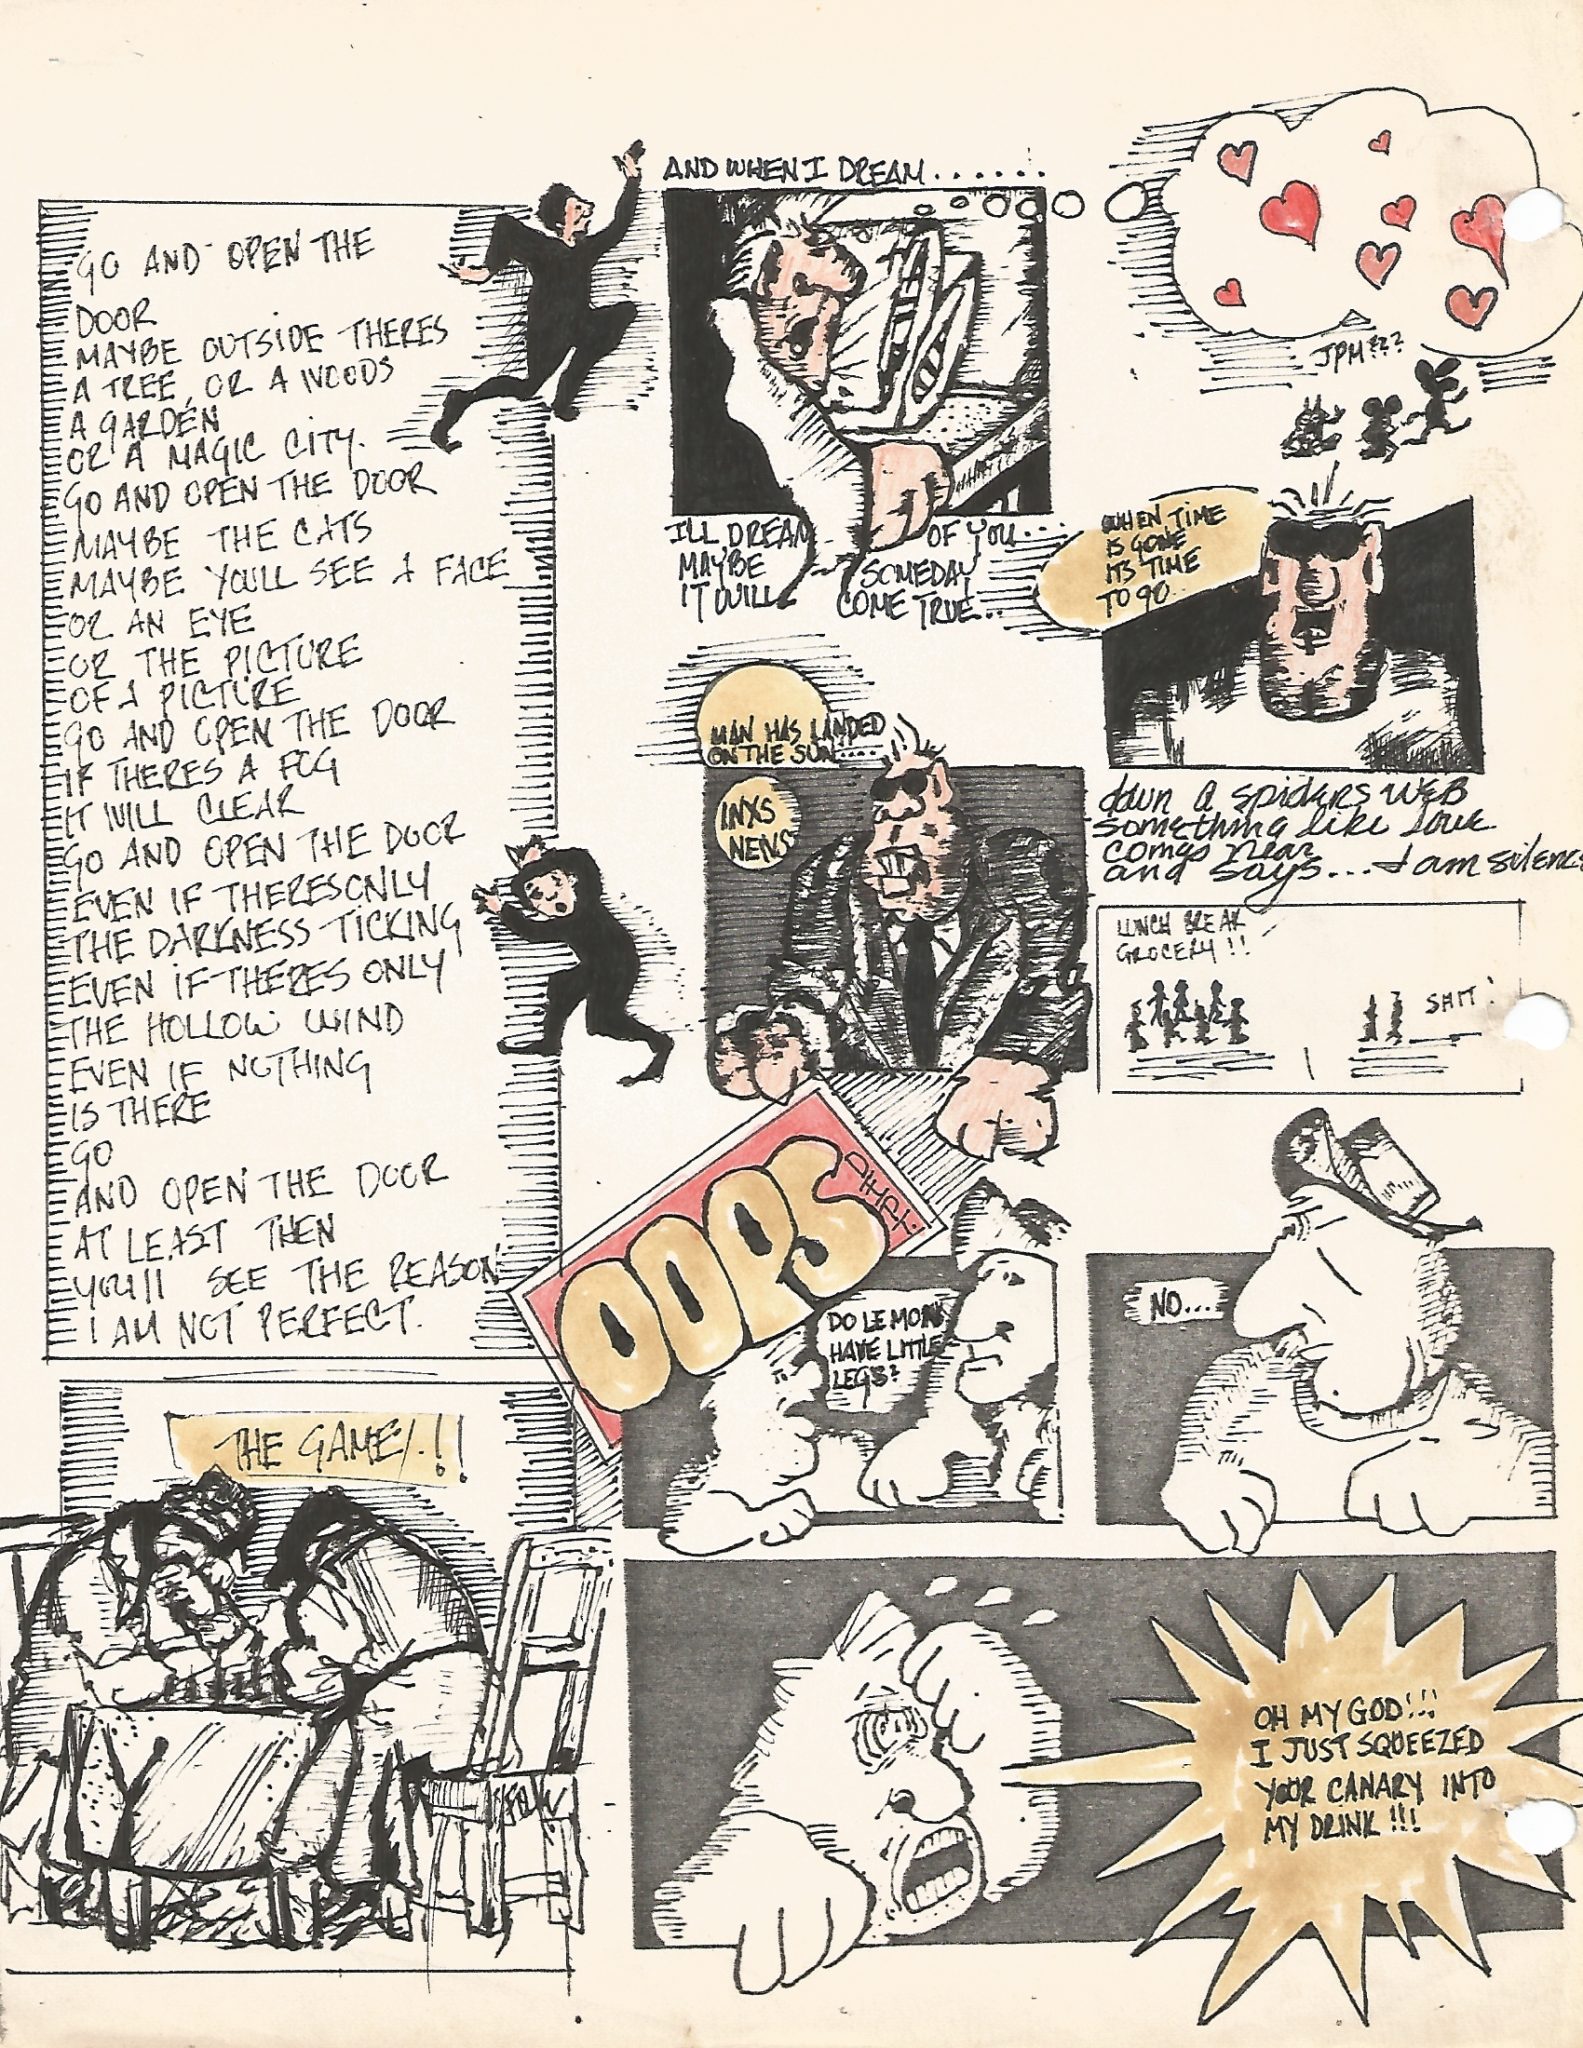 GO AND OPEN THE
DOOR
MAYBE OUTSIDE THERES
A TREE, OR A WOODS
A GARDEN
OR A MAGIC CITY.
GO AND OPEN THE DOOR
MAYBE THE CATS
MAYBE YOULL SEE A FACE
OR AN EYE
OR THE PICTURE
OF A PICTURE
GO AND OPEN THE DOOR
IF THERES A FOG
IT WILL CLEAR
GO AND OPEN THE DOOR
EVEN IF THERES ONLY
THE DARKNESS TICKING
EVEN IF THERES ONLY
THE HOLLOW WIND
EVEN IF NOTHING
IS THERE
GO
AND OPEN THE DOOR
AT LEAST THEN
YOU'll SEE THE REASON
I AM NOT PERFECT.
AND WHEN I DREAM......
ILL DREAM OF YOU...
MAYBE SOMEDAY
IT WILL COME TRUE...
JPM???
WHEN TIME
IS GONE
ITS TIME
TO GO..
down a spiders WEB
something like love
comes near
and says....I am silence
MAN HAS LANDED
ON THE SUN....
INXS
NEWS
LUNCH BREAK
GROCERY!!
SHIT!
OOPS
DO LEMONS
HAVE LITTLE
LEGS?
NO...
THE GAME/.!!
OH MY GOD!!!
I JUST SQUEEZED
YOUR CANARY INTO
MY DRINK!!!